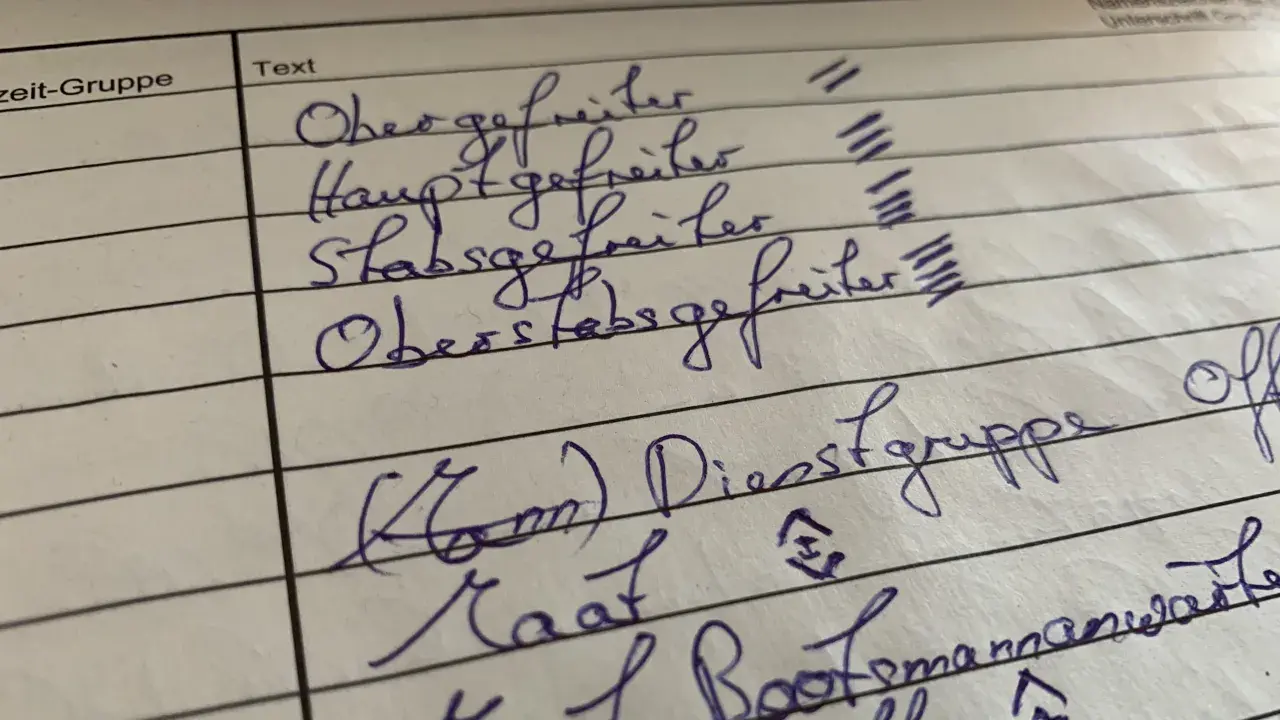 zeit-Gruppe
Text
Unterschrift
Obergefreiter
Hauptgefreiter
Stabsgefreiter
Oberstabsgefreiter
Dienstgruppe Off
Maat
Bootsmannanwärte